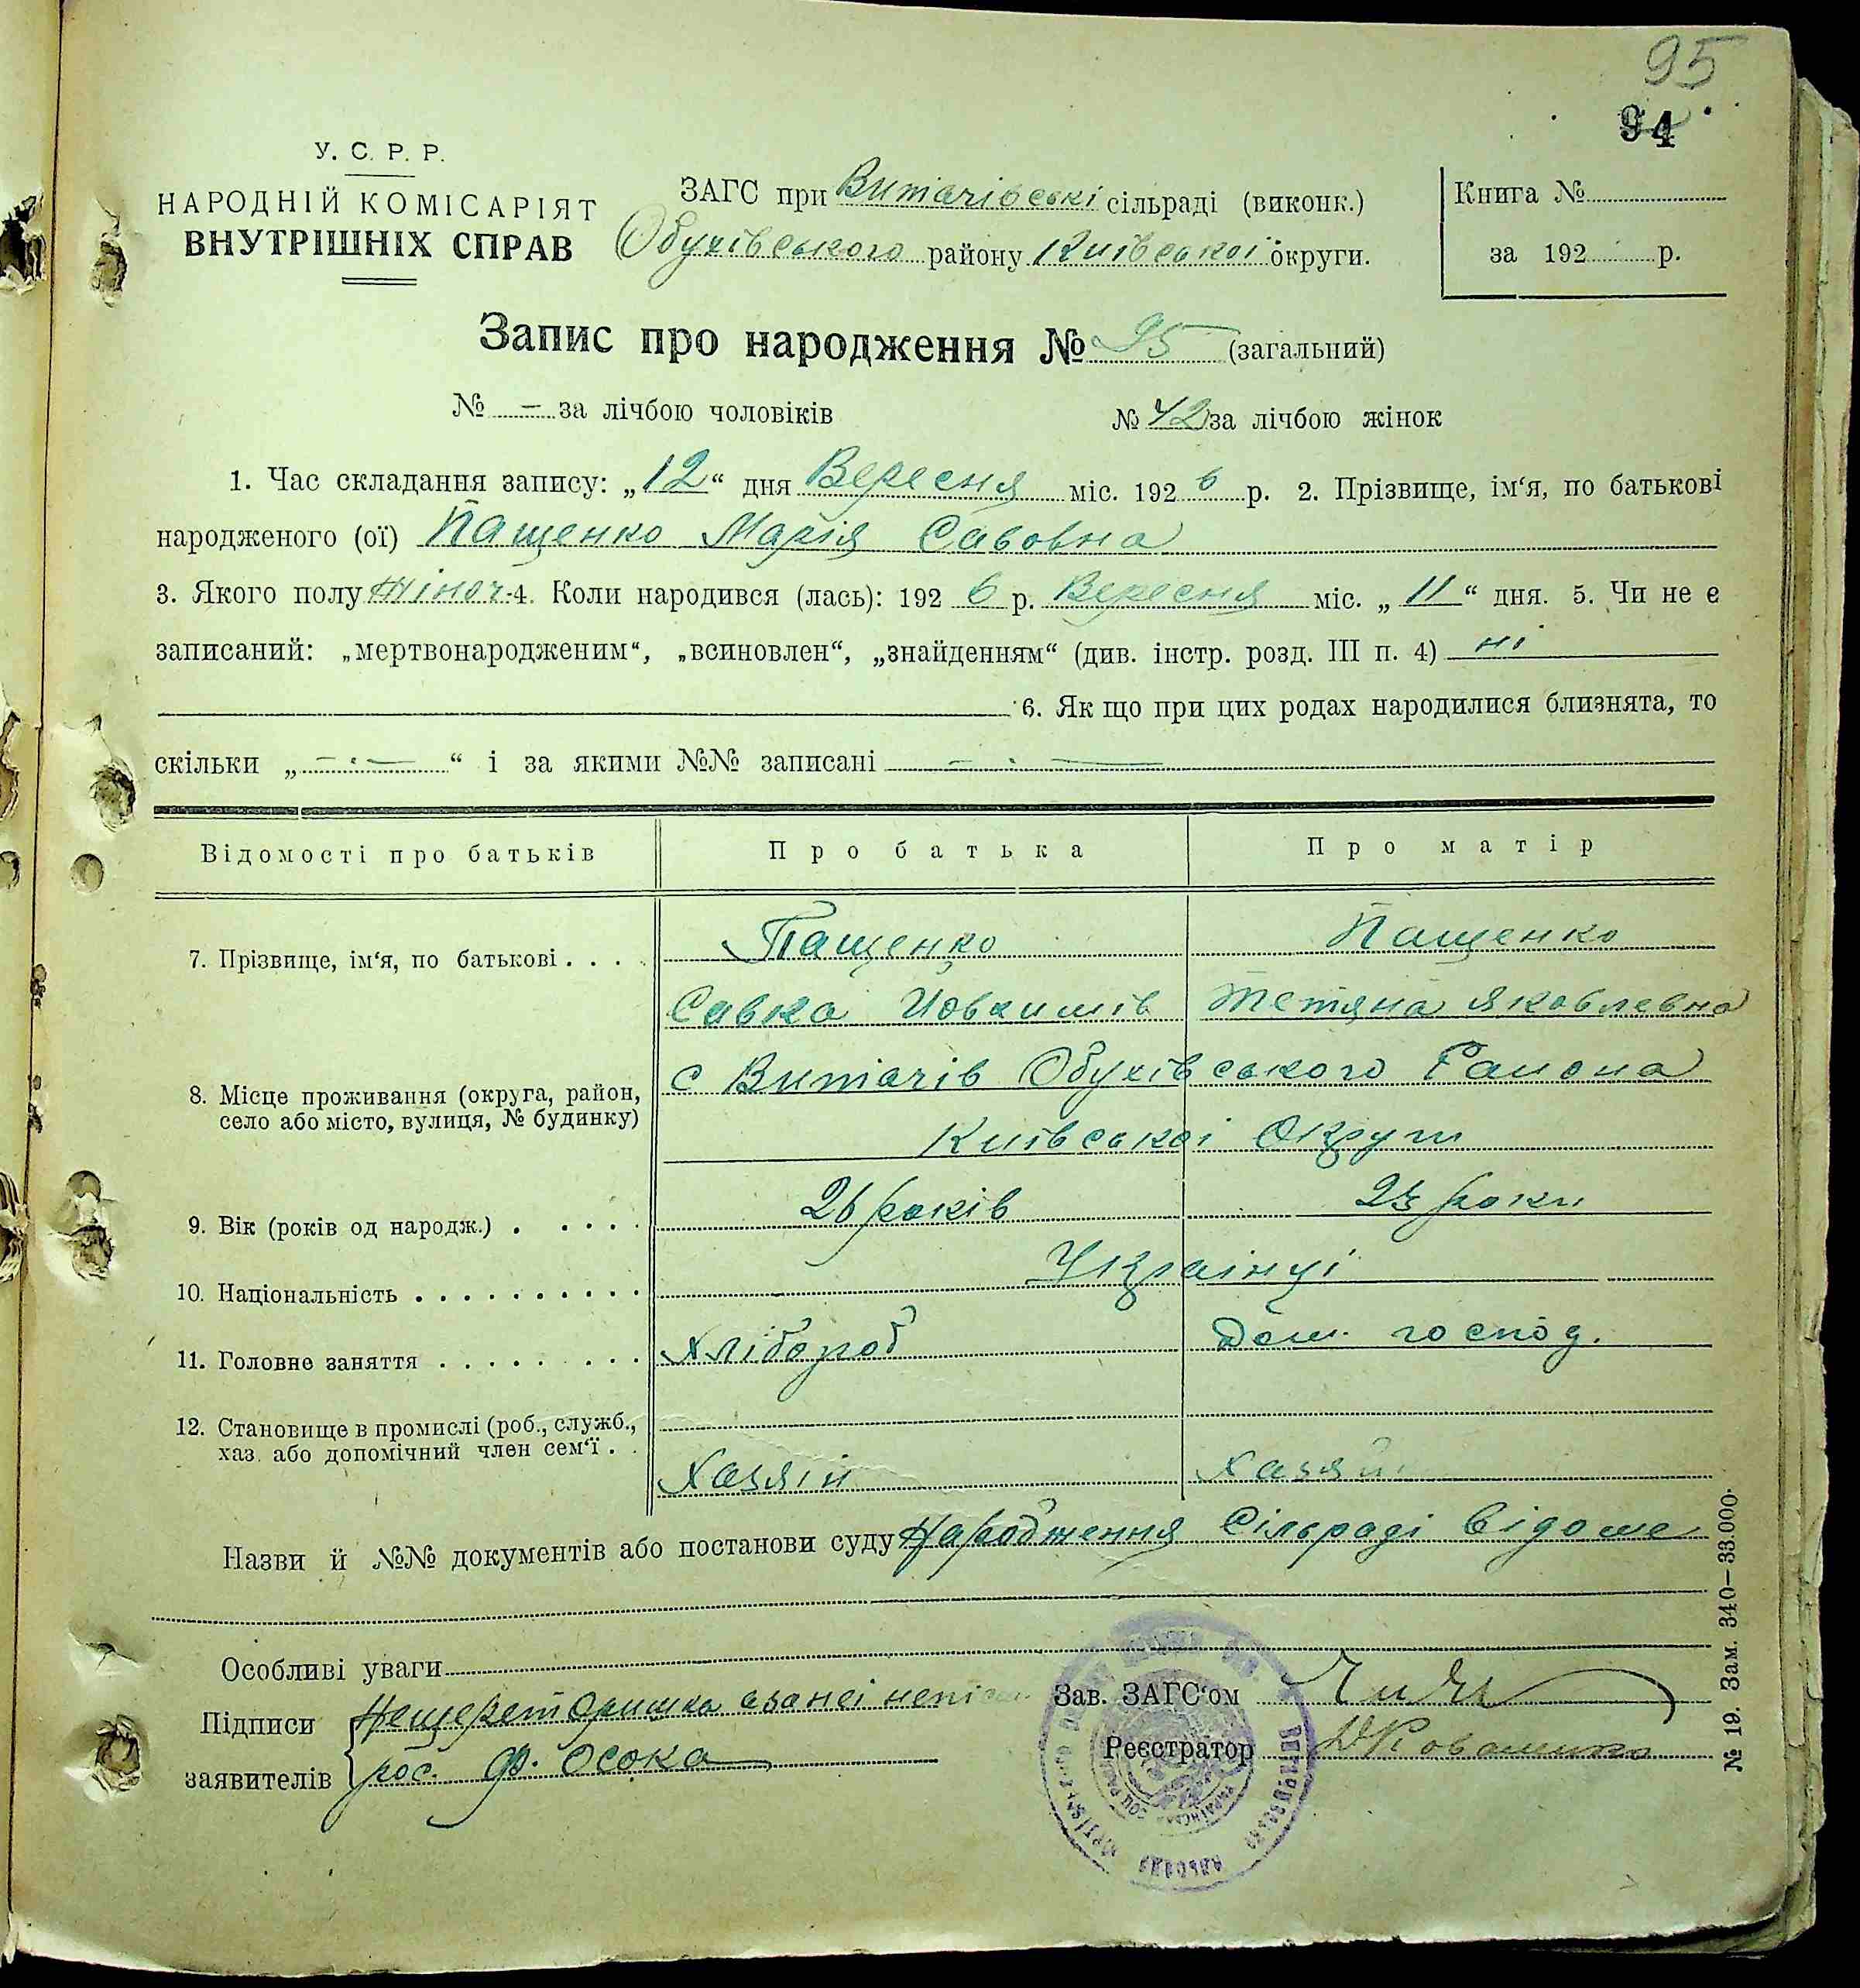 95
94
У. С. Р. Р.
НАРОДНІЙ КОМІСАРІЯТ
ВНУТРІШНІХ СПРАВ
ЗАГС при Витачівські сільраді (виконк.)
Обухівського району Київської округи.
Книга №
за 192 р.
Запис про народження № 95 (загальний)
№ — за лічбою чоловіків № 42 за лічбою жінок
1. Час складання запису: „12“ дня Вересня міс. 192 6 р. 2. Прізвище, ім‘я, по батькові
народженого (ої) Пащенко Марія Савовна
3. Якого полу жіноч. 4. Коли народився (лась): 192 6 р. Вересня міс. „11“ дня. 5. Чи не є
записаний: „мертвонародженим“, „всиновлен“, „знайденням“ (див. інстр. розд. III п. 4) ні
6. Як що при цих родах народилися близнята, то
скільки „ — “ і за якими №№ записані —
Відомості про батьків Про батька Про матір
7. Прізвище, ім‘я, по батькові . . . . Пащенко Пащенко
Савка Йовкимів Тетяна Яковлевна
8. Місце проживання (округа, район, с Витачів Обухівського Района
село або місто, вулиця, № будинку)
Київської Округи
9. Вік (років од народж.) . . . . . 26 років 23 роки
10. Національність . . . . . . . . . . Українці
11. Головне заняття . . . . . . . . . Хлібороб Дом. господ.
12. Становище в промислі (роб., служб.,
хаз. або допомічний член сем‘ї . . Хазяїн Хазяйк
Назви й №№ документів або постанови суду Народження Сільраді відоме
Особливі уваги
Підписи Оришка а за неї
заявителів рос. Ф. Осока
Зав. ЗАГС‘ом
Реєстратор
№ 19. Зам. 340—33.000.